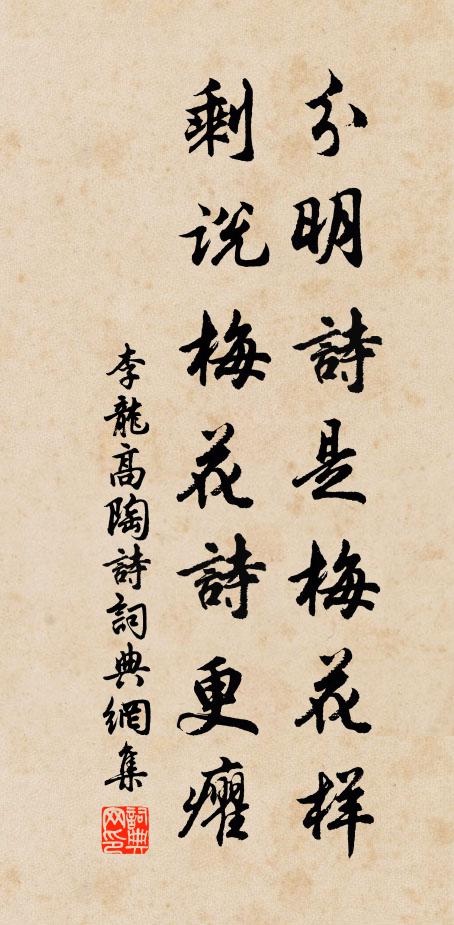 分明詩是梅花样
剩説梅花詩更癯
李龍高陶詩詞典網集
詞典
网印